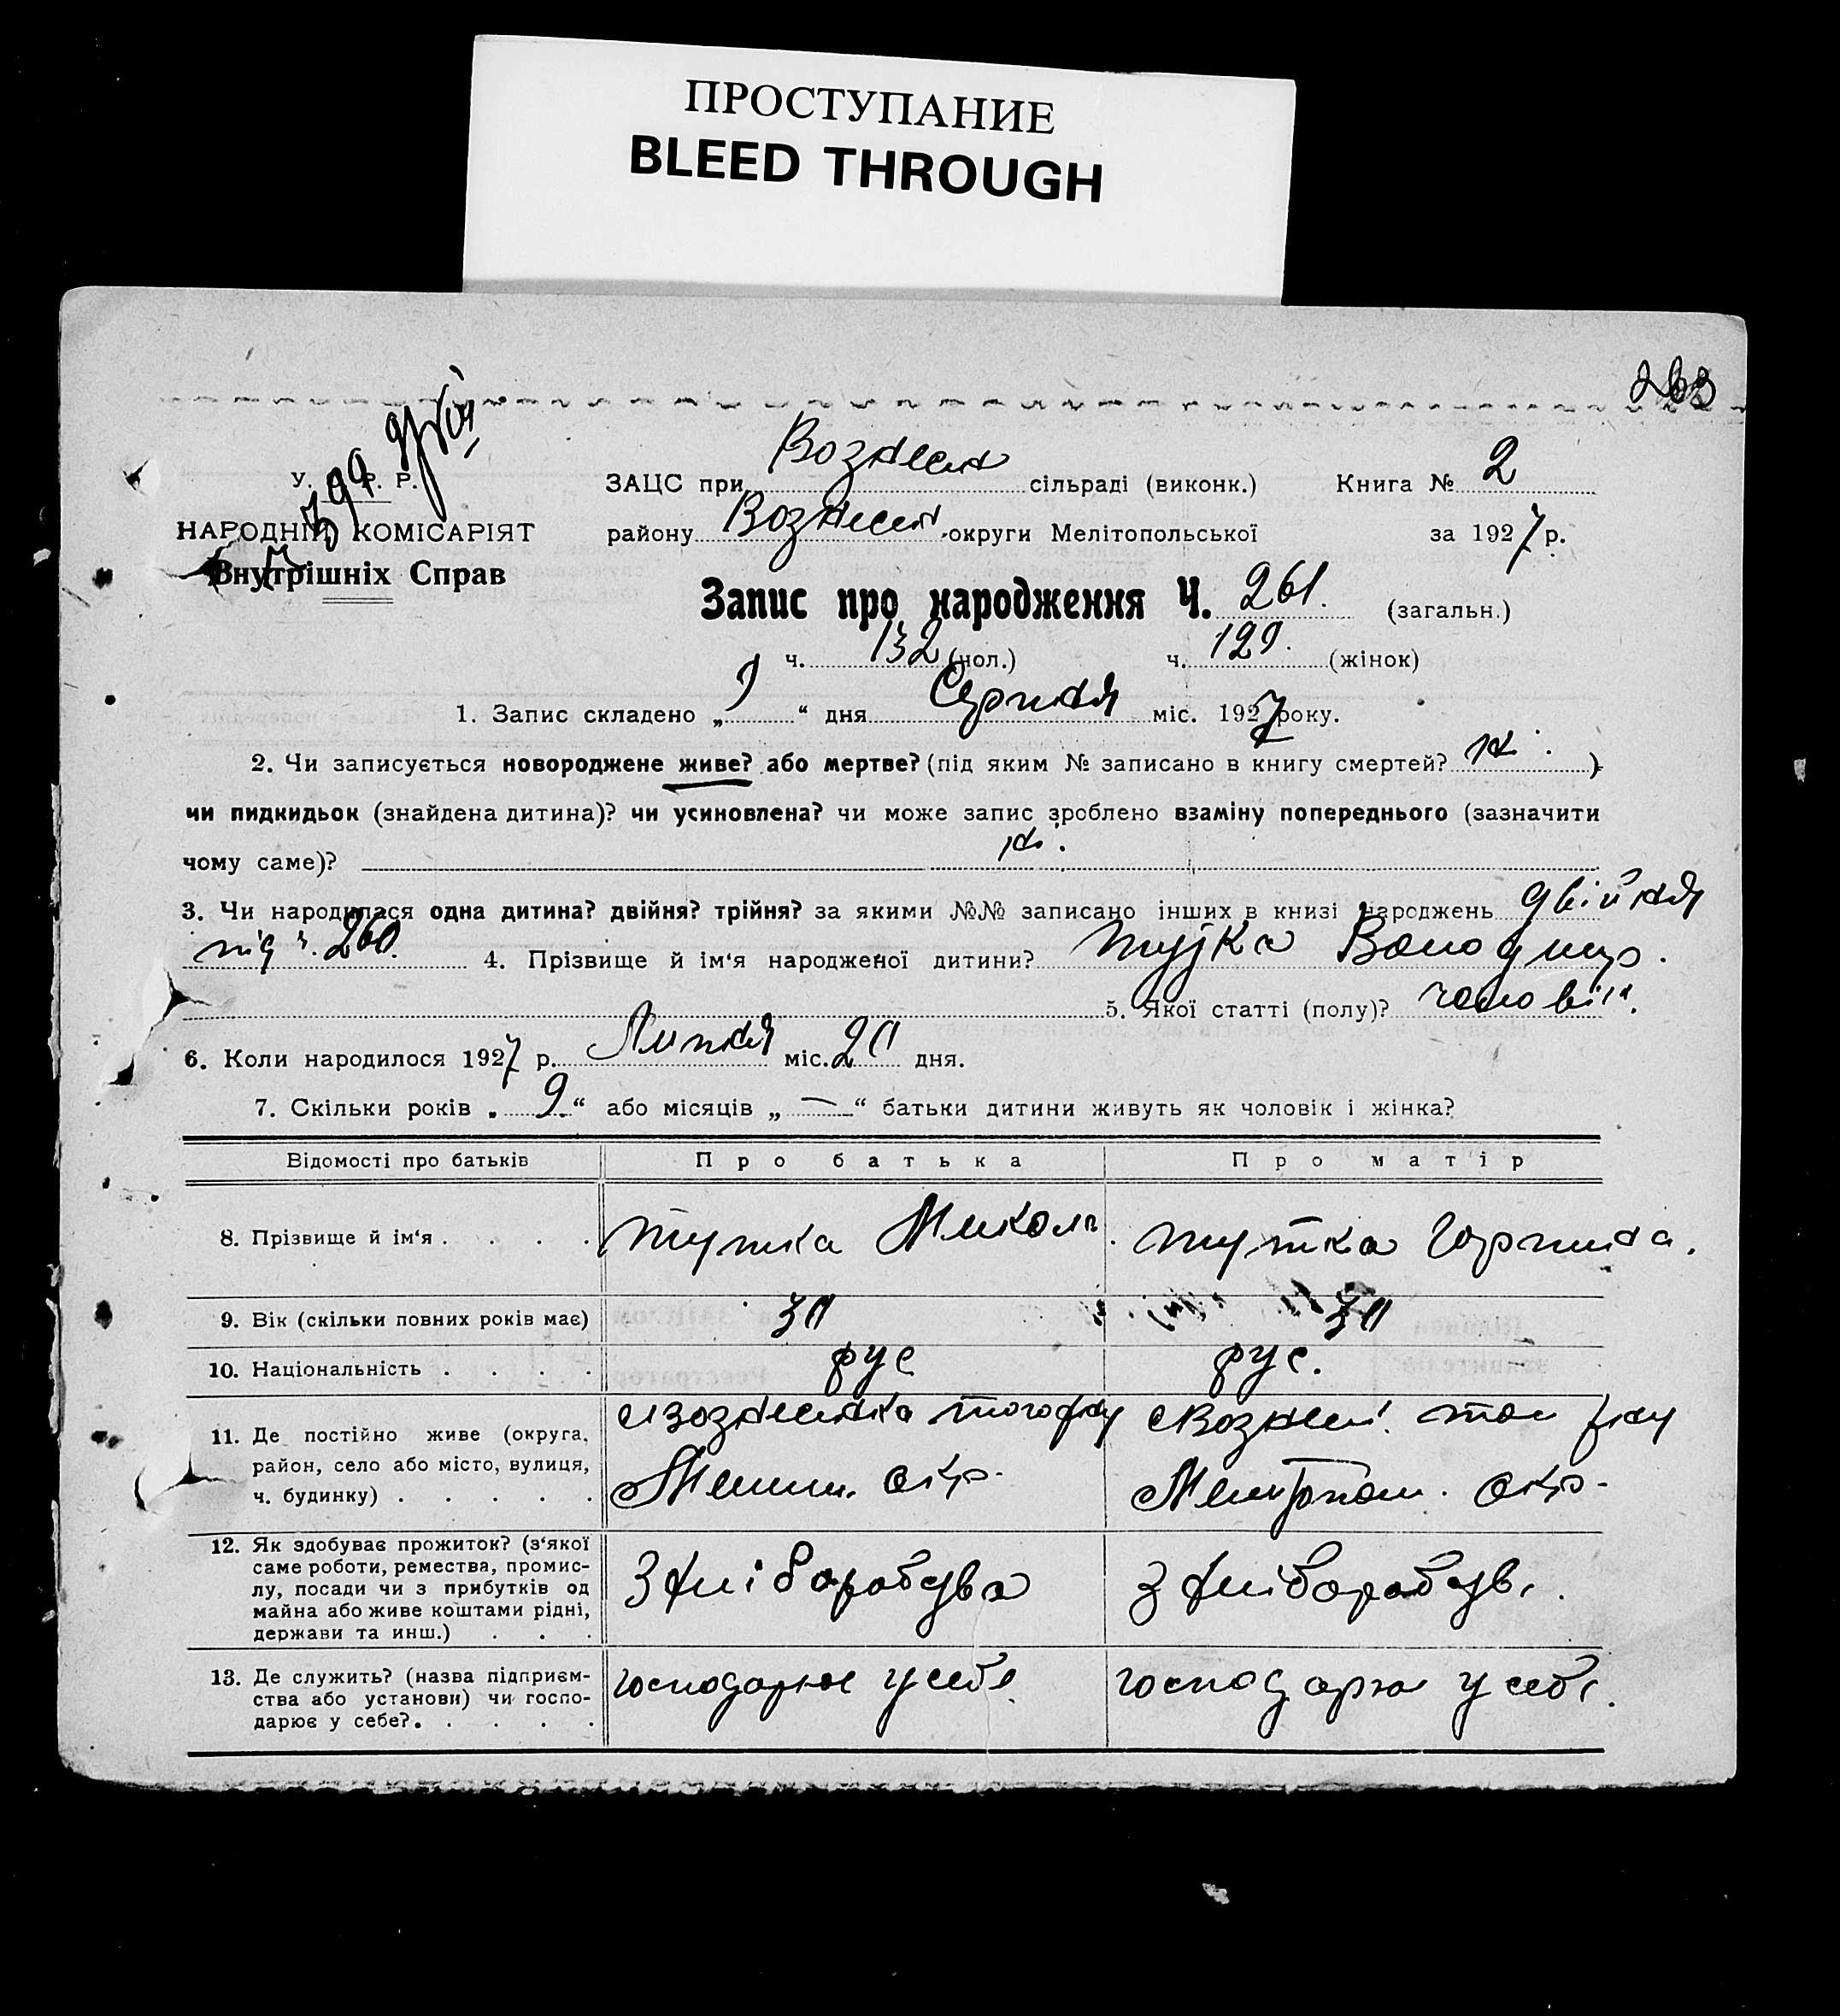 ПРОСТУПАНИЕ
BLEED THROUGH
263
У. С. Р. Р.
НАРОДНІЙ КОМІСАРІЯТ
Внутрішніх Справ
ЗАЦС при Вознесен сільраді (виконк.) Книга № 2
району Вознесен округи Мелітопольської за 1927 р.
Запис про народження Ч. 261. (загальн.)
ч. 132 (чол.) ч. 129. (жінок)
1. Запис складено „ 9 “ дня Серпня міс. 1927 року.
2. Чи записується новороджене живе? або мертве? (під яким № записано в книгу смертей? ні. )
чи пидкидьок (знайдена дитина)? чи усиновлена? чи може запис зроблено взаміну попереднього (зазначити
чому саме)? ні.
3. Чи народилася одна дитина? двійня? трійня? за якими №№ записано інших в книзі народжень двійня
під ч. 260. 4. Прізвище й ім‘я народженої дитини? Володимр.
5. Якої статті (полу)? чоловіч.
6. Коли народилося 1927 р. Липня міс. 20 дня.
7. Скільки років „ 9. “ або місяців „ — “ батьки дитини живуть як чоловік і жінка?
Відомості про батьків Про батька Про матір
8. Прізвище й ім‘я . . . . Микола. Горпина.
9. Вік (скільки повних років має) 30 30
10. Національність . . . . рус рус.
11. Де постійно живе (округа,
район, село або місто, вулиця,
ч. будинку) . . . . .
с Вознесенка того р-ну
Мелит. окр.
с Вознесен. того р-ну
Мелитопол. окр.
12. Як здобуває прожиток? (з‘якої
саме роботи, ремества, промис-
лу, посади чи з прибутків од
майна або живе коштами рідні,
держави та инш.) . . .
З хліборобства
З хліборобств.
13. Де служить? (назва підприєм-
ства або установи) чи госпо-
дарює у себе? . . . . .
господарює у себе
господарює у себе.